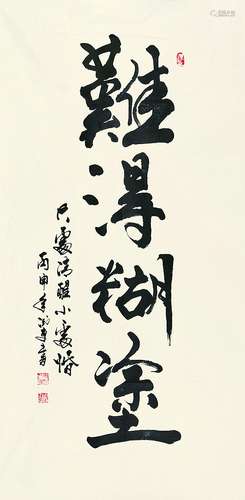 難得糊塗
大處清醒小處惛
丙申年